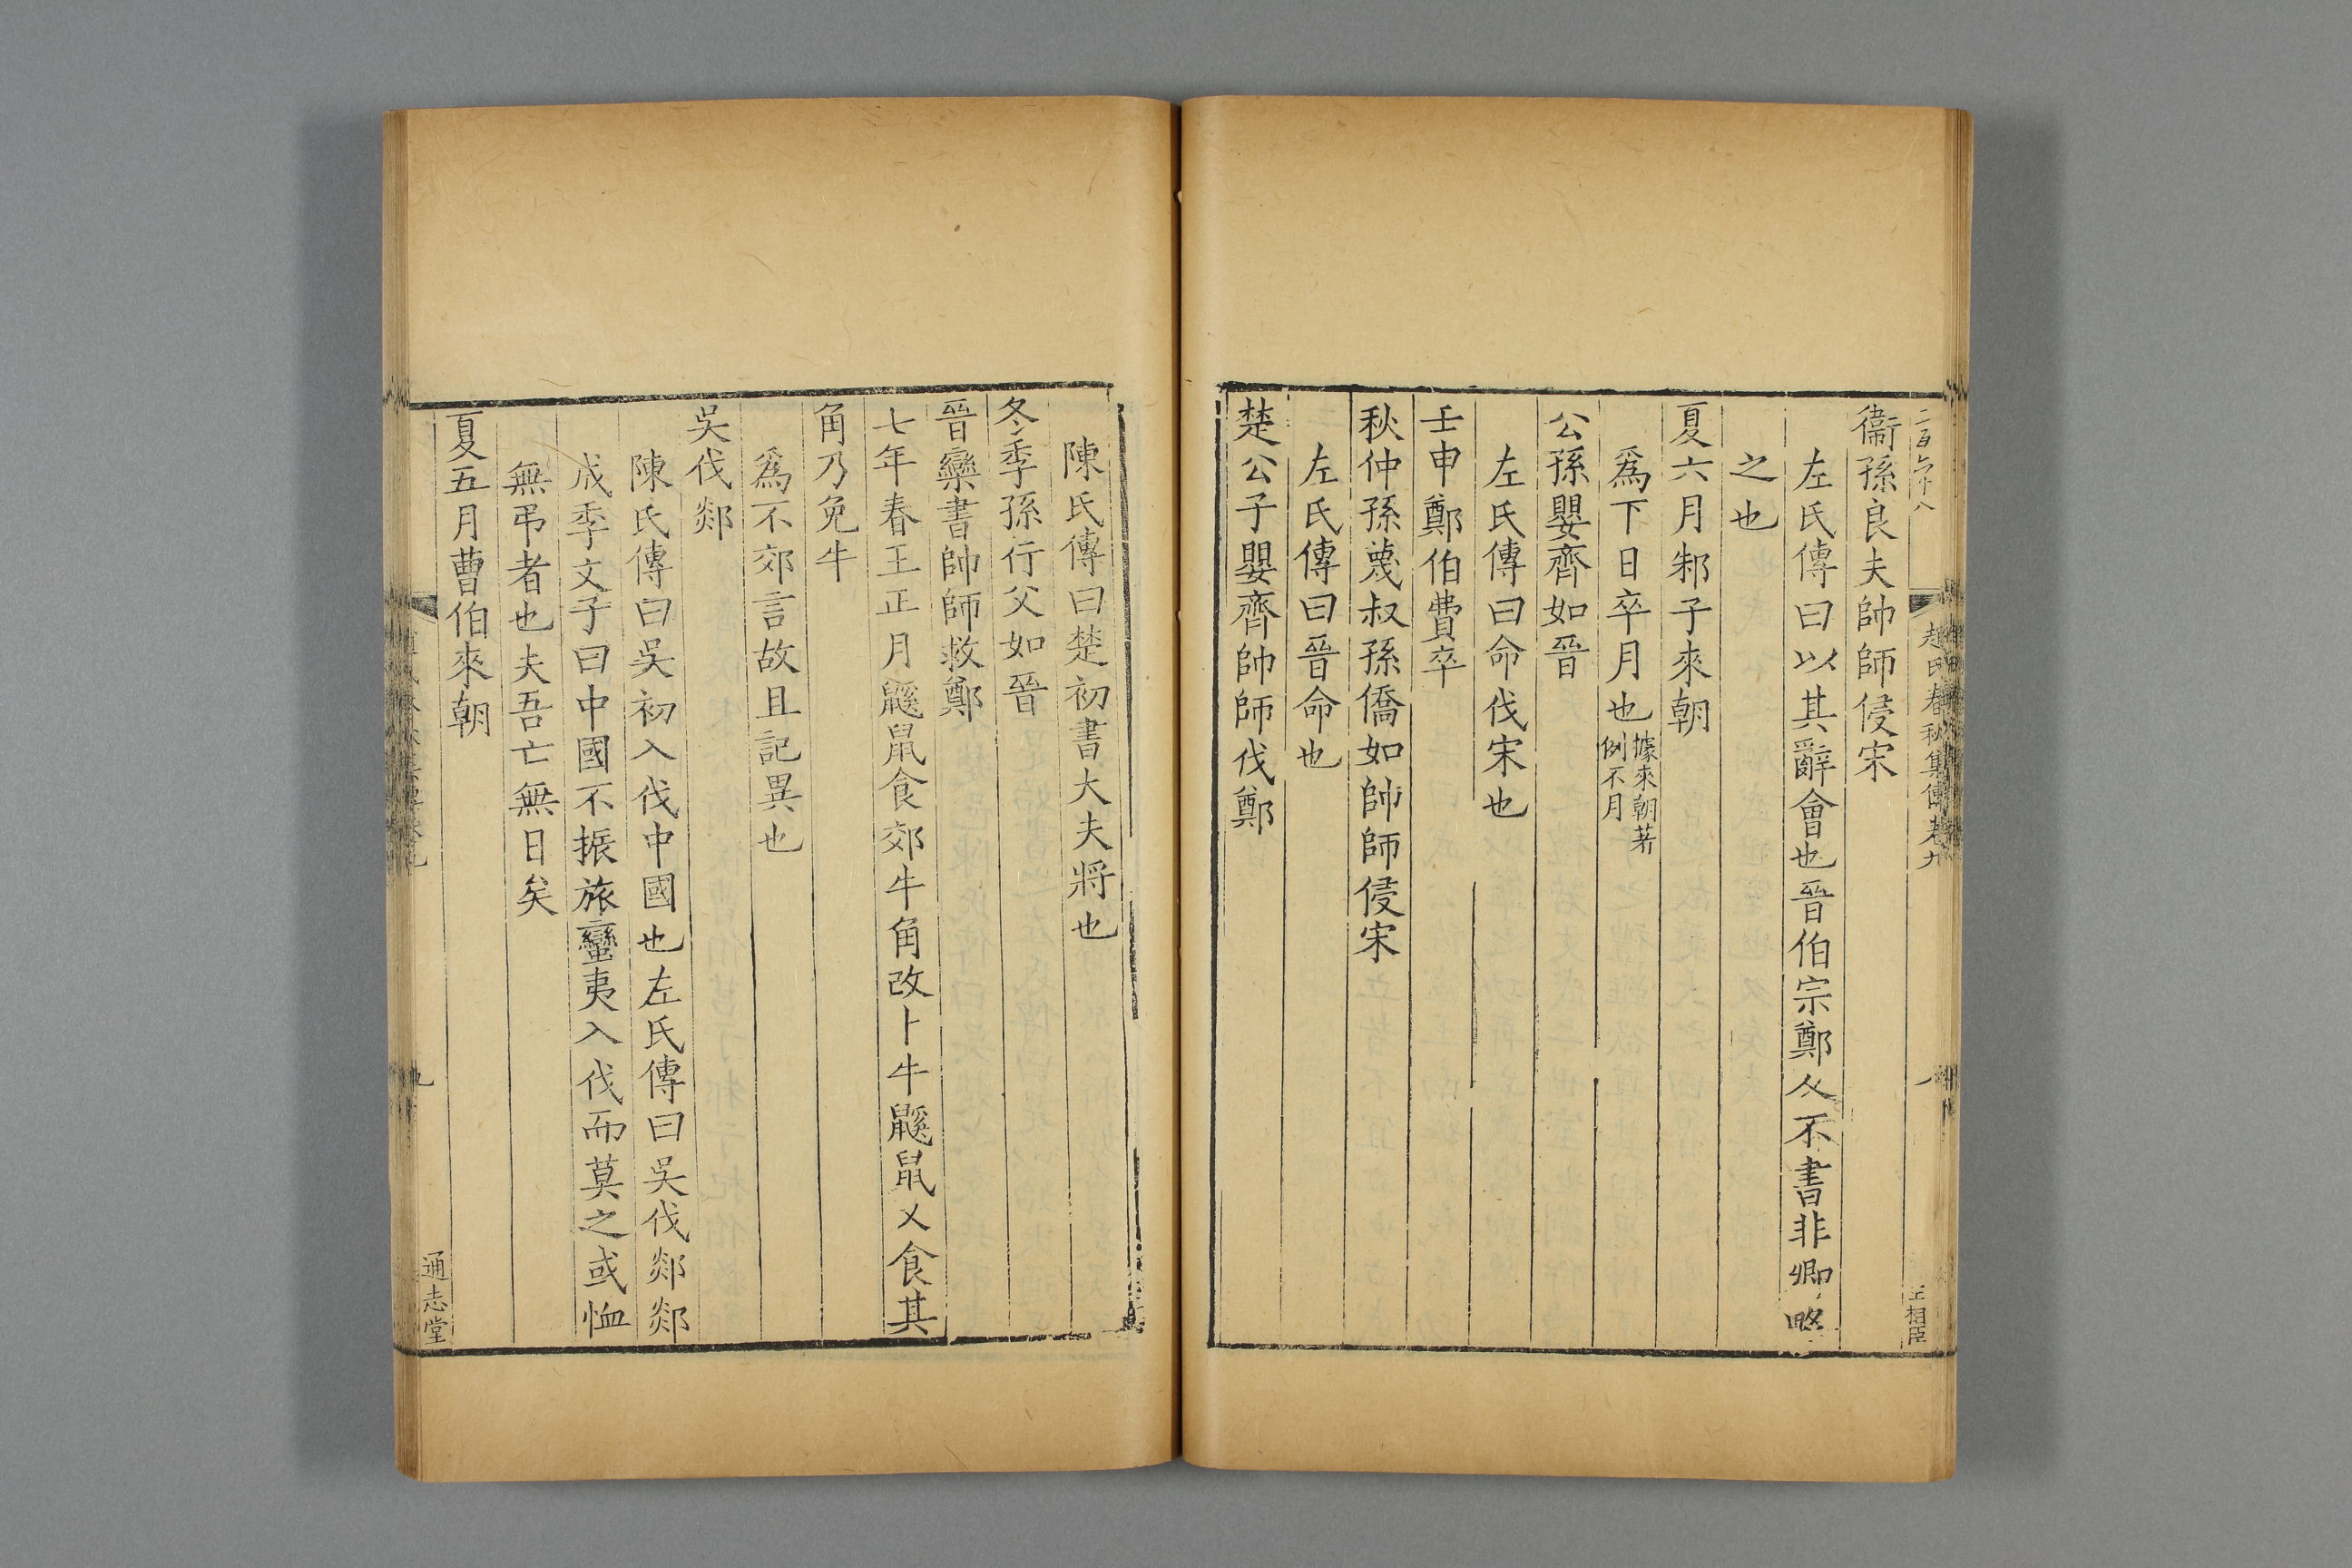 二百六十八
趙氏春秋集傳卷九
衞孫良夫帥師侵宋
左氏傳曰以其辭會也晉伯宗鄭人不書非卿略
之也
夏六月邾子來朝
爲下日卒月也據來朝著
例不月
公孫嬰齊如晉
左氏傳曰命伐宋也
壬申鄭伯費卒
秋仲孫蔑叔孫僑如帥師侵宋
左氏傳曰晉命也
楚公子嬰齊帥師伐鄭
陳氏傳曰楚初書大夫將也
冬季孫行父如晉
晉欒書帥師救鄭
七年春王正月鼷鼠食郊牛角改卜牛鼷鼠又食其
角乃免牛
爲不郊言故且記異也
吳伐郯
陳氏傳曰吳初入伐中國也左氏傳曰吳伐郯郯
成季文子曰中國不振旅蠻夷入伐而莫之或恤
無弔者也夫吾亡無日矣
夏五月曹伯來朝
通志堂